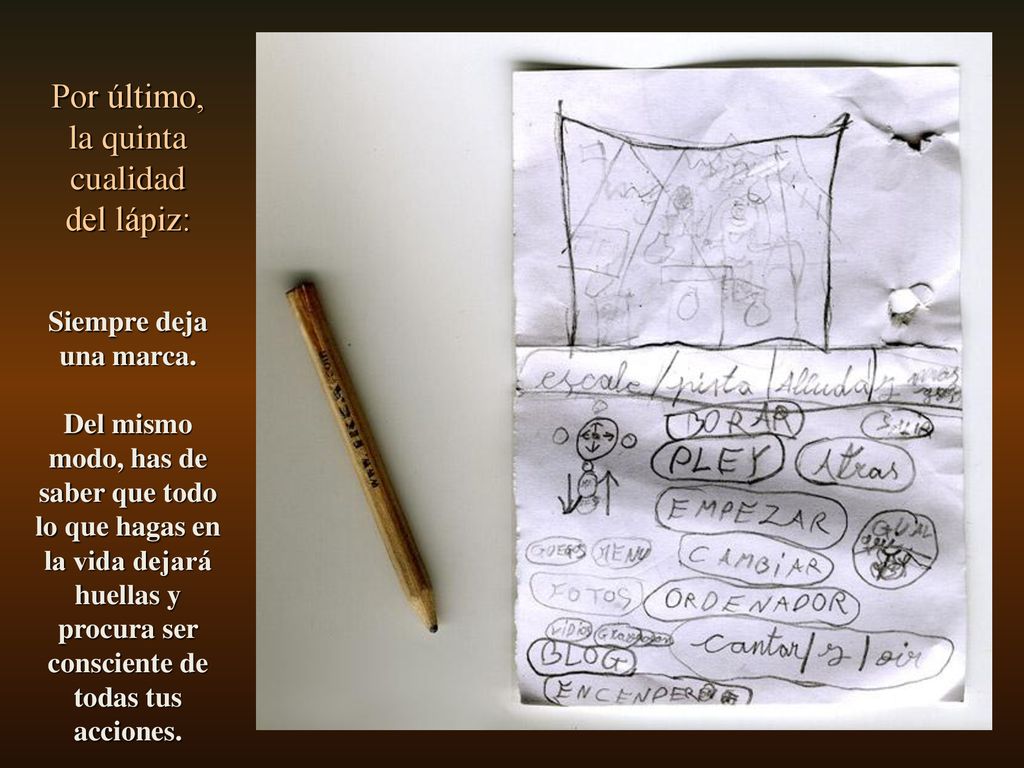 Por último,
la quinta
cualidad
del lápiz:
Siempre deja
una marca.
Del mismo
modo, has de
saber que todo
lo que hagas en
la vida dejará
huellas y
procura ser
consciente de
todas tus
acciones.
escale/pista/Alluda/y
BORAR SALIR
PLEY Atras
EMPEZAR
GUEGOS MENU CAMBIAR
FOTOS ORDENADOR
VIDIOS
cantar/y/oir
BLOG